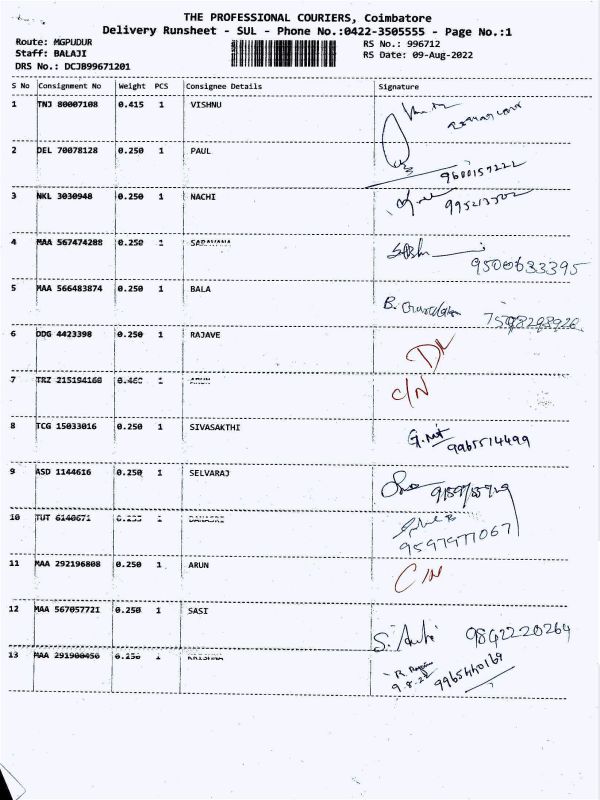 THE PROFESSIONAL COURIERS, Coimbatore
Delivery Runsheet - SUL - Phone No.:0422-3505555 - Page No.:1
Route: MGPUDUR
RS No.: 996712
Staff: BALAJI
RS Date: 09-Aug-2022
DRS No.: DCJB99671201
S No Consignment No Weight PCS Consignee Details Signature
1 TNJ 80007108 0.415 1 VISHNU
2 DEL 70078128 0.250 1 PAUL
9600157222
3 NKL 3030948 0.250 1 NACHI
4 MAA 567474288 0.250 1 SARAVANA
9500633395
5 MAA 566483874 0.250 1 BALA
B.
6 DDG 4423398 0.250 1 RAJAVE
7 TRZ 215194160 1 ARUN
C/N
8 TCG 15033016 0.250 1 SIVASAKTHI
9965514499
9 ASD 1144616 0.250 1 SELVARAJ
10 TUT 6140671 1
9597977067
11 MAA 292196808 0.250 1 ARUN
C/N
12 MAA 567057721 0.250 1 SASI
S. 9842220264
13 MAA 291900450 0.250 1 KRISHNA
9.8.22 9965440169